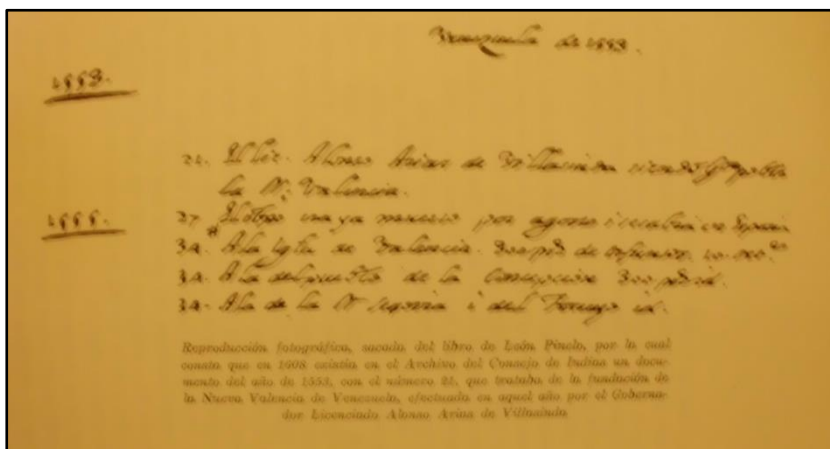 Venezuela de 1553.
1553.
21. El lic. Alonso Arias de Villacinda siendo Gor. poblo
la Na. Valencia.
27. El obpo
1555.
34. A la iglia de Valencia. 300 ps de
34. A la del puerto de la Concepcion 300 ps id.
34. A la de la Na Segovia i del Tocuyo id.
Reproducción fotográfica, sacada del libro de León Pinelo, por la cual
consta que en 1608 existía en el Archivo del Consejo de Indias un docu-
mento del año de 1553, con el número 21, que trataba de la fundación de
la Nueva Valencia de Venezuela, efectuada en aquel año por el Goberna-
dor Licenciado Alonso Arias de Villasinda